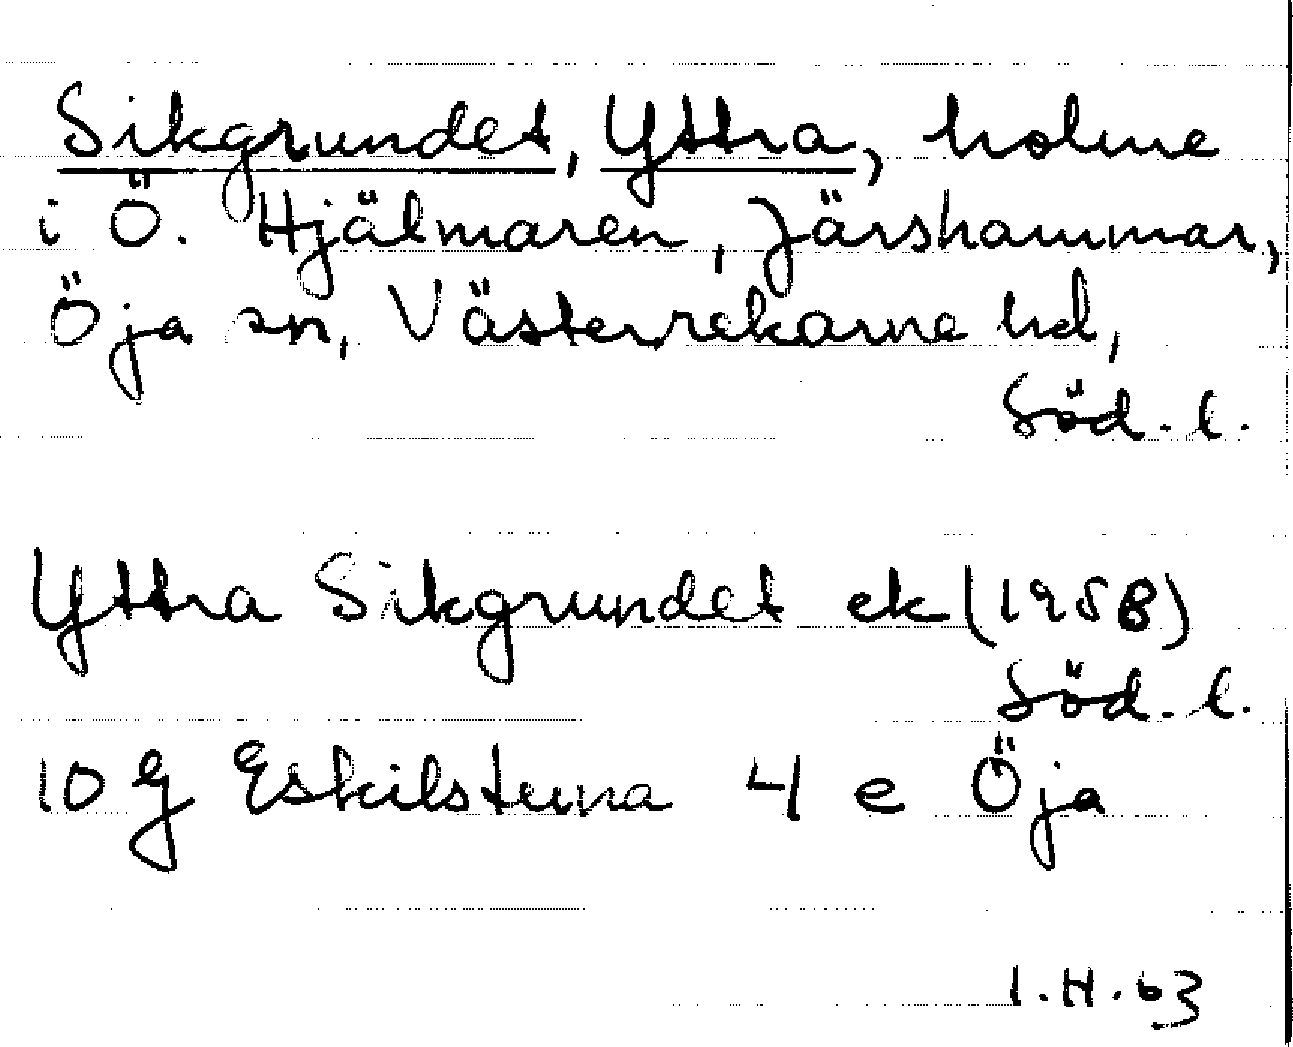 Sikgrundet, Yttra, holme
i Ö. Hjälmaren, Järshammar,
Öja sn, Västerrekarne hd,
Söd. l.
Yttra Sikgrundet ek (1958)
Söd. l.
10 g Eskilstuna 4 e Öja
I.H.63